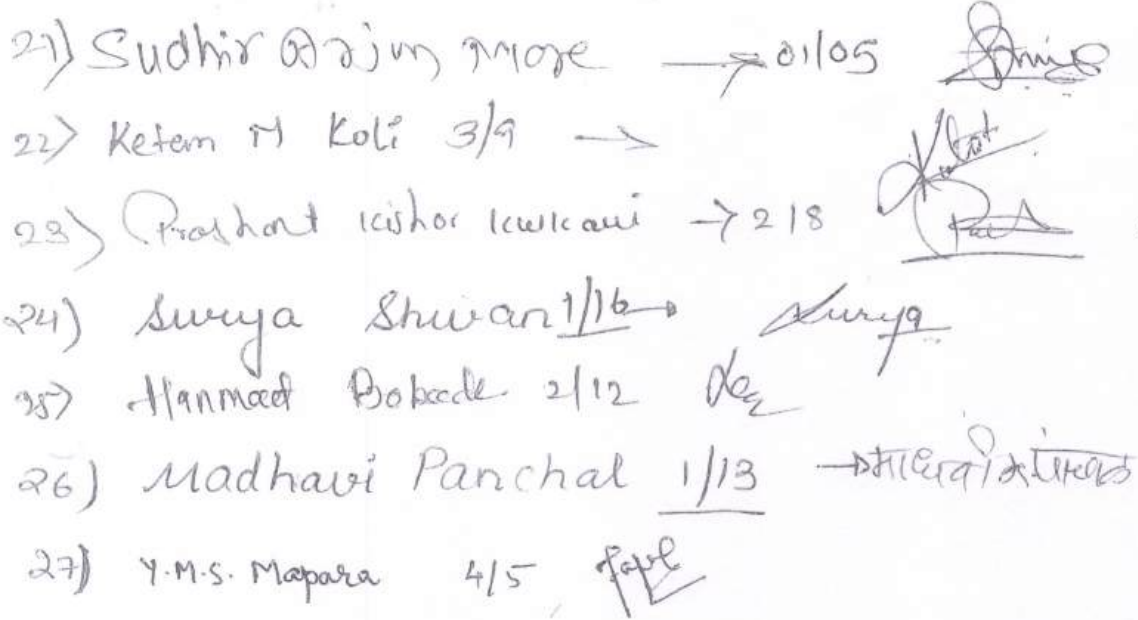 21) Sudhir Arjun More → 01/05
22) Ketan M Koli 3/9 →
23) Prashant Kishor Kulkarni → 2/8
24) Surya Shivan 1/16 → Surya
25) Hanmant Bobade 2/12
26) Madhavi Panchal 1/13 →
27) Y.M.S. Mapara 4/5